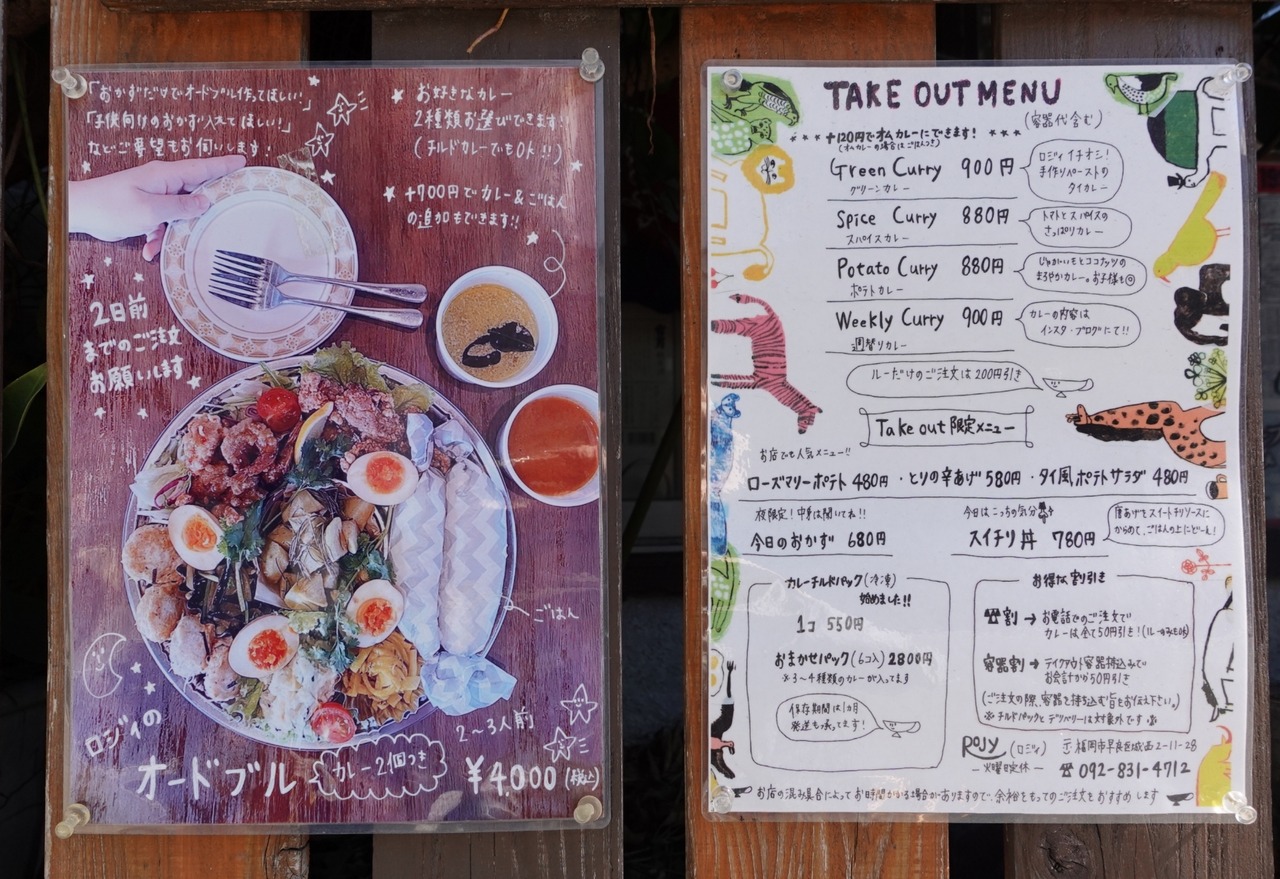 「おかずだけでオードブル作ってほしい!」
「子供向けのおかず入れてほしい!」
などご要望もお伺いします!
お好きなカレー
2種類お選びできます!
(チルドカレーでもOK!!)
+700円でカレー&ごはん
の追加もできます!!
2日前
までのご注文
お願いします
ごはん
2〜3人前
ロジィの
オードブル
カレー2個つき
¥4,000(税込)
TAKE OUT MENU
(容器代含む)
+120円でオムカレーにできます!
(オムカレーの場合はごはんつき)
Green Curry 900円
グリーンカレー
ロジィイチオシ!
手作りペーストの
タイカレー
Spice Curry 880円
スパイスカレー
トマトとスパイスの
さっぱりカレー
Potato Curry 880円
ポテトカレー
じゃがいもとココナッツの
まろやかカレー。お子様も◎
Weekly Curry 900円
週替りカレー
カレーの内容は
インスタ・ブログにて!!
ルーだけのご注文は200円引き
Take out 限定メニュー
お店でも人気メニュー!!
ローズマリーポテト 480円 ・とりの辛あげ 580円 ・タイ風ポテトサラダ 480円
夜限定!中身は聞いてね!!
今日のおかず 680円
今日はこっちの気分
スイチリ丼 780円
唐あげをスイートチリソースに
からめて、ごはんの上にどーん!
カレーチルドパック(冷凍)
始めました!!
1コ 550円
おまかせパック(6コ入) 2800円
※3〜4種類のカレーが入ってます
保存期間は1ヵ月
発送も承ってます!
お得な割引き
☎割 → お電話でのご注文で
カレーは全て50円引き!(ルーのみもOK)
容器割 → テイクアウト容器持込みで
お会計から50円引き
(ご注文の際、容器を持ち込む旨をお伝え下さい。)
※チルドパックとデリバリーは対象外です※
ROJY(ロジィ)
〒福岡市早良区城西2-11-28
― 火曜日定休 ―
☎ 092-831-4712
お店の混み具合によってお時間かかる場合がありますので、余裕をもってのご注文をおすすめします